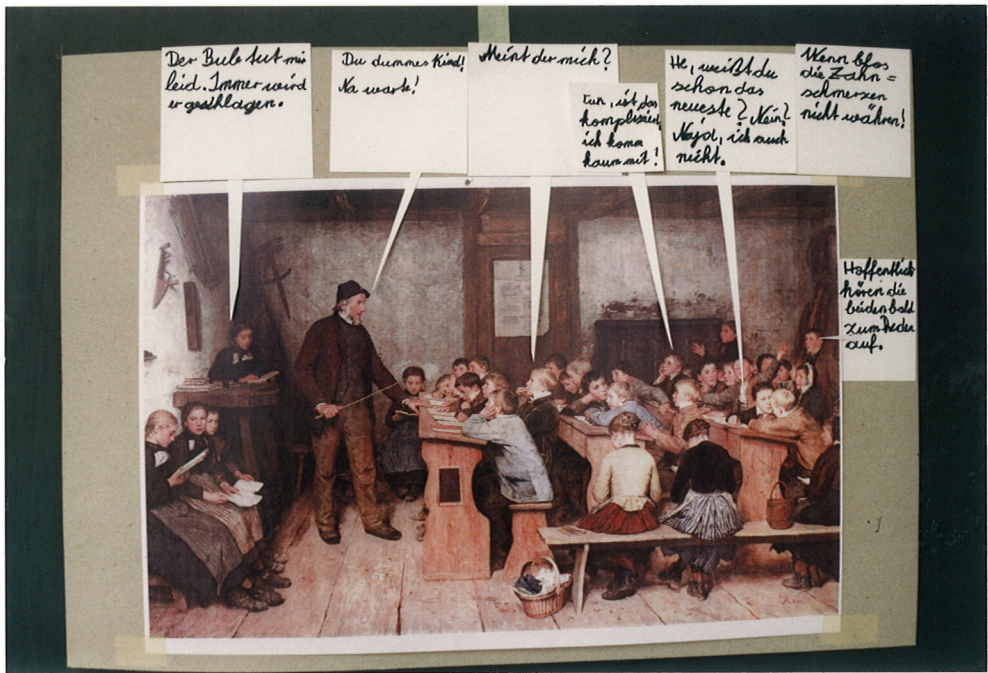 Der Bube tut mir
leid. Immer wird
er geschlagen.
Du dummes Kind!
Na warte!
Meint der mich?
ist das
kompliziert,
ich komm
kaum mit!
He, weißt du
schon das
neueste? Nein?
Naja, ich auch
nicht.
Wenn blos
die Zahn=
schmerzen
nicht währen!
Hoffentlich
hören die
beiden bald
zum Reden
auf.